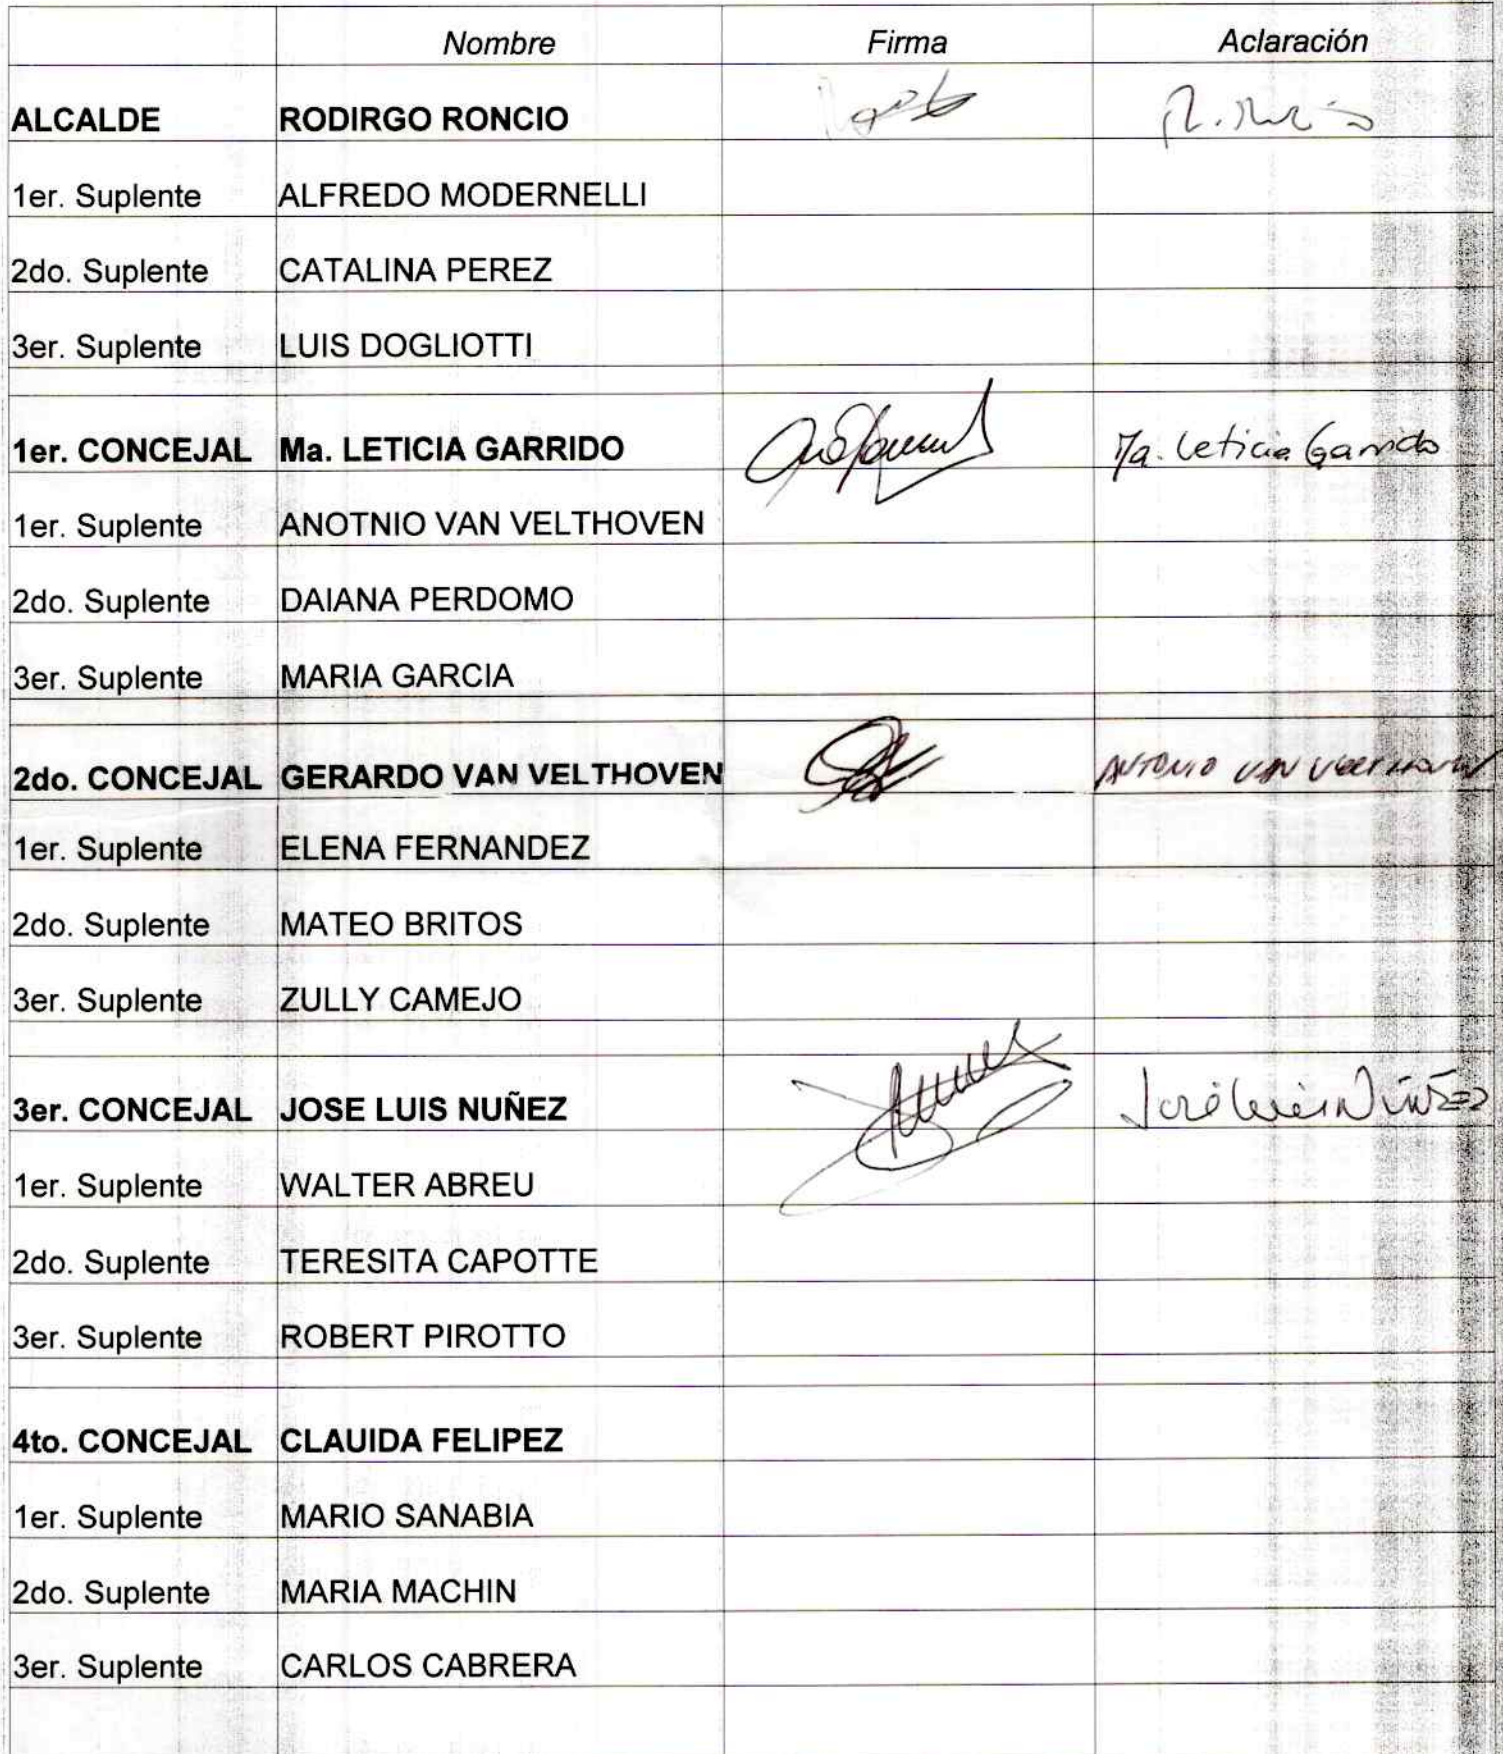 Nombre Firma Aclaración
ALCALDE RODIRGO RONCIO
1er. Suplente ALFREDO MODERNELLI
2do. Suplente CATALINA PEREZ
3er. Suplente LUIS DOGLIOTTI
1er. CONCEJAL Ma. LETICIA GARRIDO Ma. Leticia Garrido
1er. Suplente ANOTNIO VAN VELTHOVEN
2do. Suplente DAIANA PERDOMO
3er. Suplente MARIA GARCIA
2do. CONCEJAL GERARDO VAN VELTHOVEN ANTONIO VAN VELTHOVEN
1er. Suplente ELENA FERNANDEZ
2do. Suplente MATEO BRITOS
3er. Suplente ZULLY CAMEJO
3er. CONCEJAL JOSE LUIS NUÑEZ José Luis Núñez
1er. Suplente WALTER ABREU
2do. Suplente TERESITA CAPOTTE
3er. Suplente ROBERT PIROTTO
4to. CONCEJAL CLAUIDA FELIPEZ
1er. Suplente MARIO SANABIA
2do. Suplente MARIA MACHIN
3er. Suplente CARLOS CABRERA